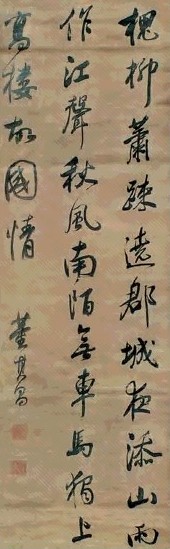 槐柳蕭疎遶郡城夜添山雨
作江聲秋風南陌無車馬獨上
高樓故國情
董其昌